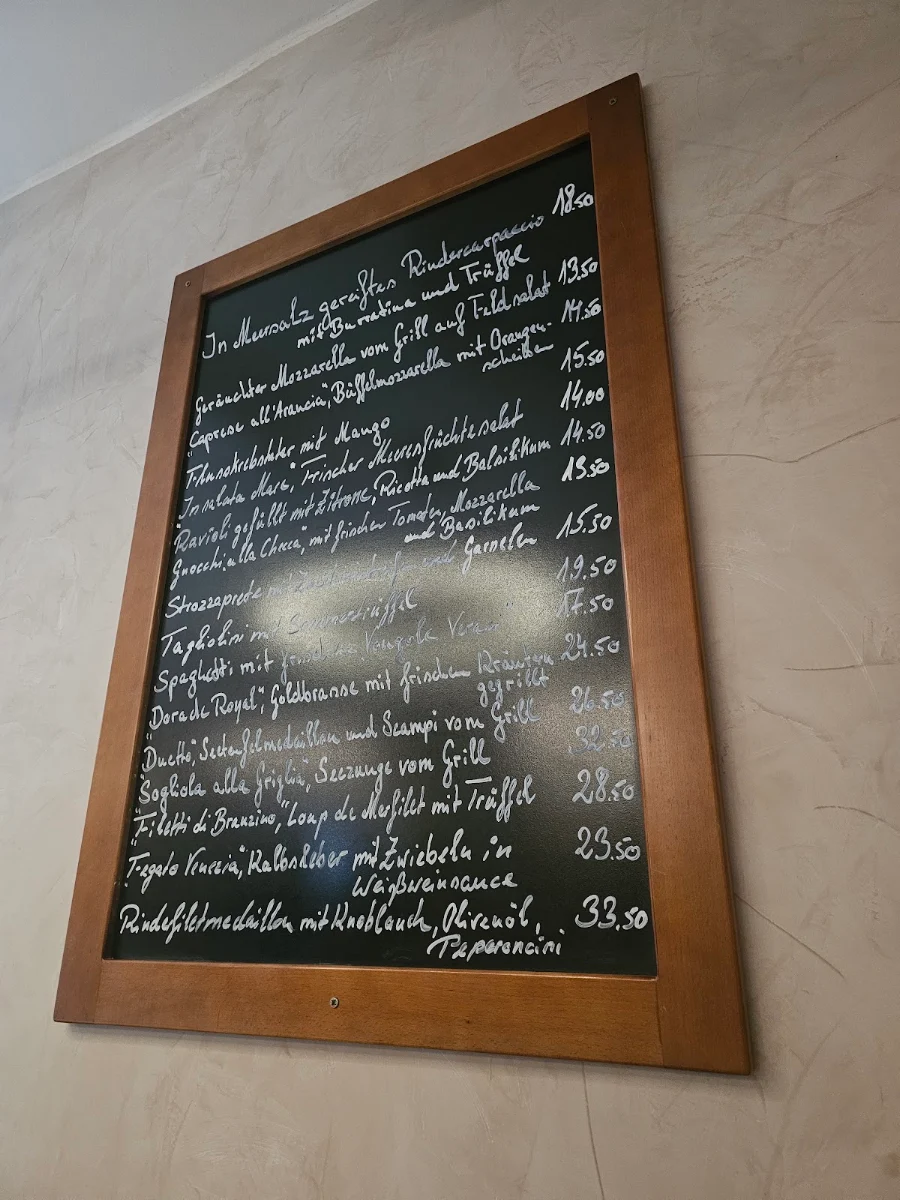 In Meersalz gereiftes Rindercarpaccio 18.50
mit Burratina und Trüffel
Geräuchter Mozzarella vom Grill auf Feldsalat 13.50
"Caprese all'Arancia", Büffelmozzarella mit Orangen- 14.50
scheiben
Flusskrebssalat mit Mango 15.50
"Insalata Mare", Frischer Meeresfrüchtesalat 14.00
"Ravioli gefüllt mit Zitrone, Ricotta und Balsilikum 14.50
Gnocchi alla Checca", mit frischen Tomaten, Mozzarella 13.50
und Basilikum
Strozzaprete mit und Garnelen 15.50
Tagliolini mit Sommertrüffel 19.50
Spaghetti mit frischen Vongole Veraci" 17.50
"Dorade Royal", Goldbrasse mit frischen Kräutern 24.50
gegrillt
"Duetto", Seeteufelmedaillon und Scampi vom Grill 26.50
"Sogliola alla Griglia", Seezunge vom Grill 32.50
"Filetti di Branzino," Loup de Merfilet mit Trüffel 28.50
"Fegato Venezia", Kalbsleber mit Zwiebeln in 23.50
Weißweinsauce
Rinderfiletmedaillon mit Knoblauch, Olivenöl, 33.50
Peperoncini